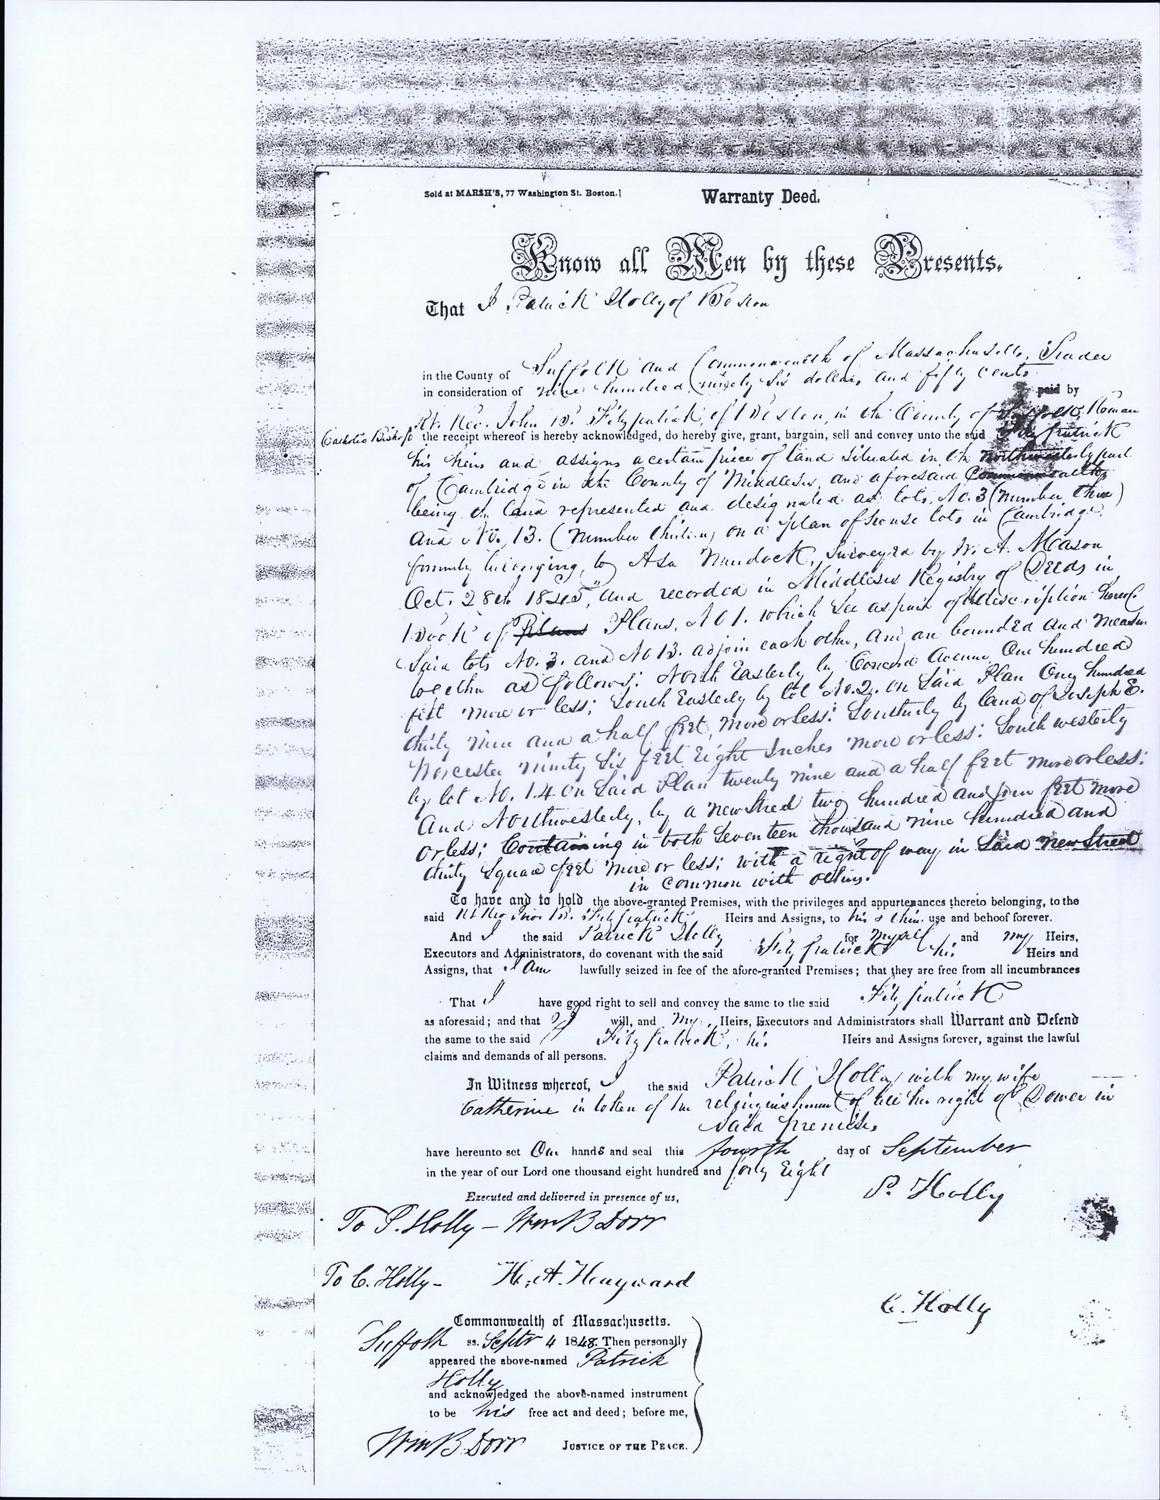 Sold at MARSH'S, 77 Washington St. Boston.]
Warranty Deed.
Know all Men by these Presents.
That I Patrick Holly of Boston
in the County of Suffolk and Commonwealth of Massachusetts, Trader
in consideration of nine hundred ninety six dollars and fifty cents paid by
Rt. Rev. John B. Fitzpatrick, of Boston, in the County of Suffolk, Roman
Catholic Bishop the receipt whereof is hereby acknowledged, do hereby give, grant, bargain, sell and convey unto the said Fitzpatrick
his heirs and assigns a certain piece of land situated in the northwesterly part
of Cambridge in the County of Middlesex and aforesaid Commonwealth
being the land represented and designated as lots No. 3 (number three)
and No. 13. (number thirteen) on a plan of house lots in Cambridge
formerly belonging to Asa Murdock, surveyed by W. A. Mason
Oct. 28th and recorded in Middlesex Registry of Deeds in
Book of Plans Plans, No 1. which see as part of the description hereof
Said lots No. 3. and No 13. adjoin each other, and are bounded and measure
together as follows: North Easterly by Concord Avenue One hundred
feet more or less; South Easterly by lot No. 2. on said Plan One hundred
thirty nine and a half feet, more or less: Southerly by land of Joseph E.
Worcester ninety six feet Eight Inches more or less: South westerly
by lot No. 14 on said Plan twenty nine and a half feet more or less:
And Northwesterly, by a new street two hundred and four feet more
or less; Containing in both seventeen thousand nine hundred and
thirty square feet more or less; with a right of way in said new street
in common with others.
To have and to hold the above-granted Premises, with the privileges and appurtenances thereto belonging, to the
said Rt Rev Jno B. Fitzpatrick Heirs and Assigns, to his & their use and behoof forever.
And I the said Patrick Holly for myself and my Heirs,
Executors and Administrators, do covenant with the said Fitzpatrick his Heirs and
Assigns, that I am lawfully seized in fee of the afore-granted Premises; that they are free from all incumbrances
That I have good right to sell and convey the same to the said Fitzpatrick
as aforesaid; and that I will, and my Heirs, Executors and Administrators shall Warrant and Defend
the same to the said Fitzpatrick, his Heirs and Assigns forever, against the lawful
claims and demands of all persons.
In Witness whereof, I the said Patrick Holly with my wife
Catherine in token of her relinquishment of all her right of Dower in
said premises
have hereunto set our hands and seal this fourth day of September
in the year of our Lord one thousand eight hundred and forty Eight
Executed and delivered in presence of us,
P. Holly
To P. Holly - Wm B Dorr
To C. Holly - H. A. Hayward
C. Holly
Commonwealth of Massachusetts.
Suffolk ss. Septr 4 1848. Then personally
appeared the above-named Patrick
Holly
and acknowledged the above-named instrument
to be his free act and deed; before me,
Wm B Dorr JUSTICE OF THE PEACE.